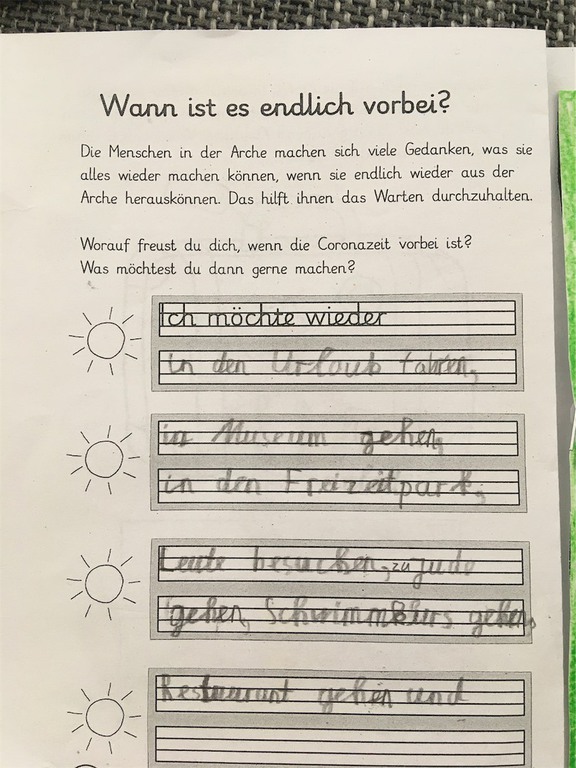 Wann ist es endlich vorbei?
Die Menschen in der Arche machen sich viele Gedanken, was sie
alles wieder machen können, wenn sie endlich wieder aus der
Arche herauskönnen. Das hilft ihnen das Warten durchzuhalten.
Worauf freust du dich, wenn die Coronazeit vorbei ist?
Was möchtest du dann gerne machen?
Ich möchte wieder
in den Urlaub fahren,
in Museum gehen,
in den Freizeitpark,
Leute besuchen, zu Judo
gehen, Schwimmkurs gehen,
Restaurant gehen und